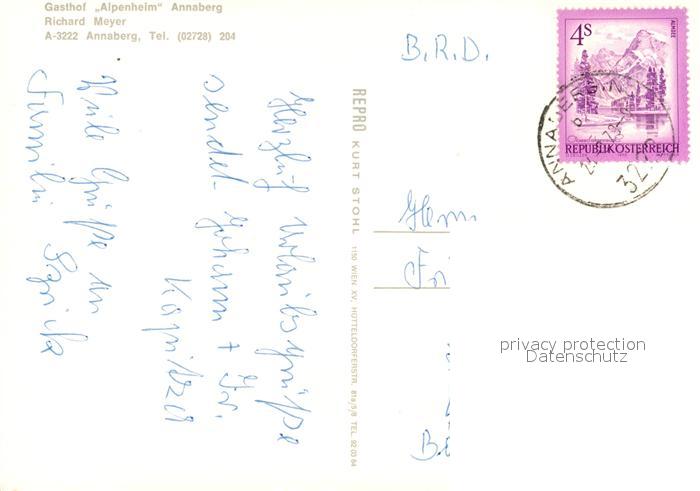 Gasthof „Alpenheim“ Annaberg
Richard Meyer
A-3222 Annaberg, Tel. (02728) 204
Herzliche Urlaubsgrüße
sendet Johann + Fr.
Viele Grüße an
Familie
REPRO KURT STOHL 1150 WIEN XV, HÜTTELDORFERSTR. 81a/5/8 TEL. 92 03 84
B.R.D.
Herrn
4S
ALMSEE
REPUBLIK ÖSTERREICH
ANNABERG
privacy protection
Datenschutz